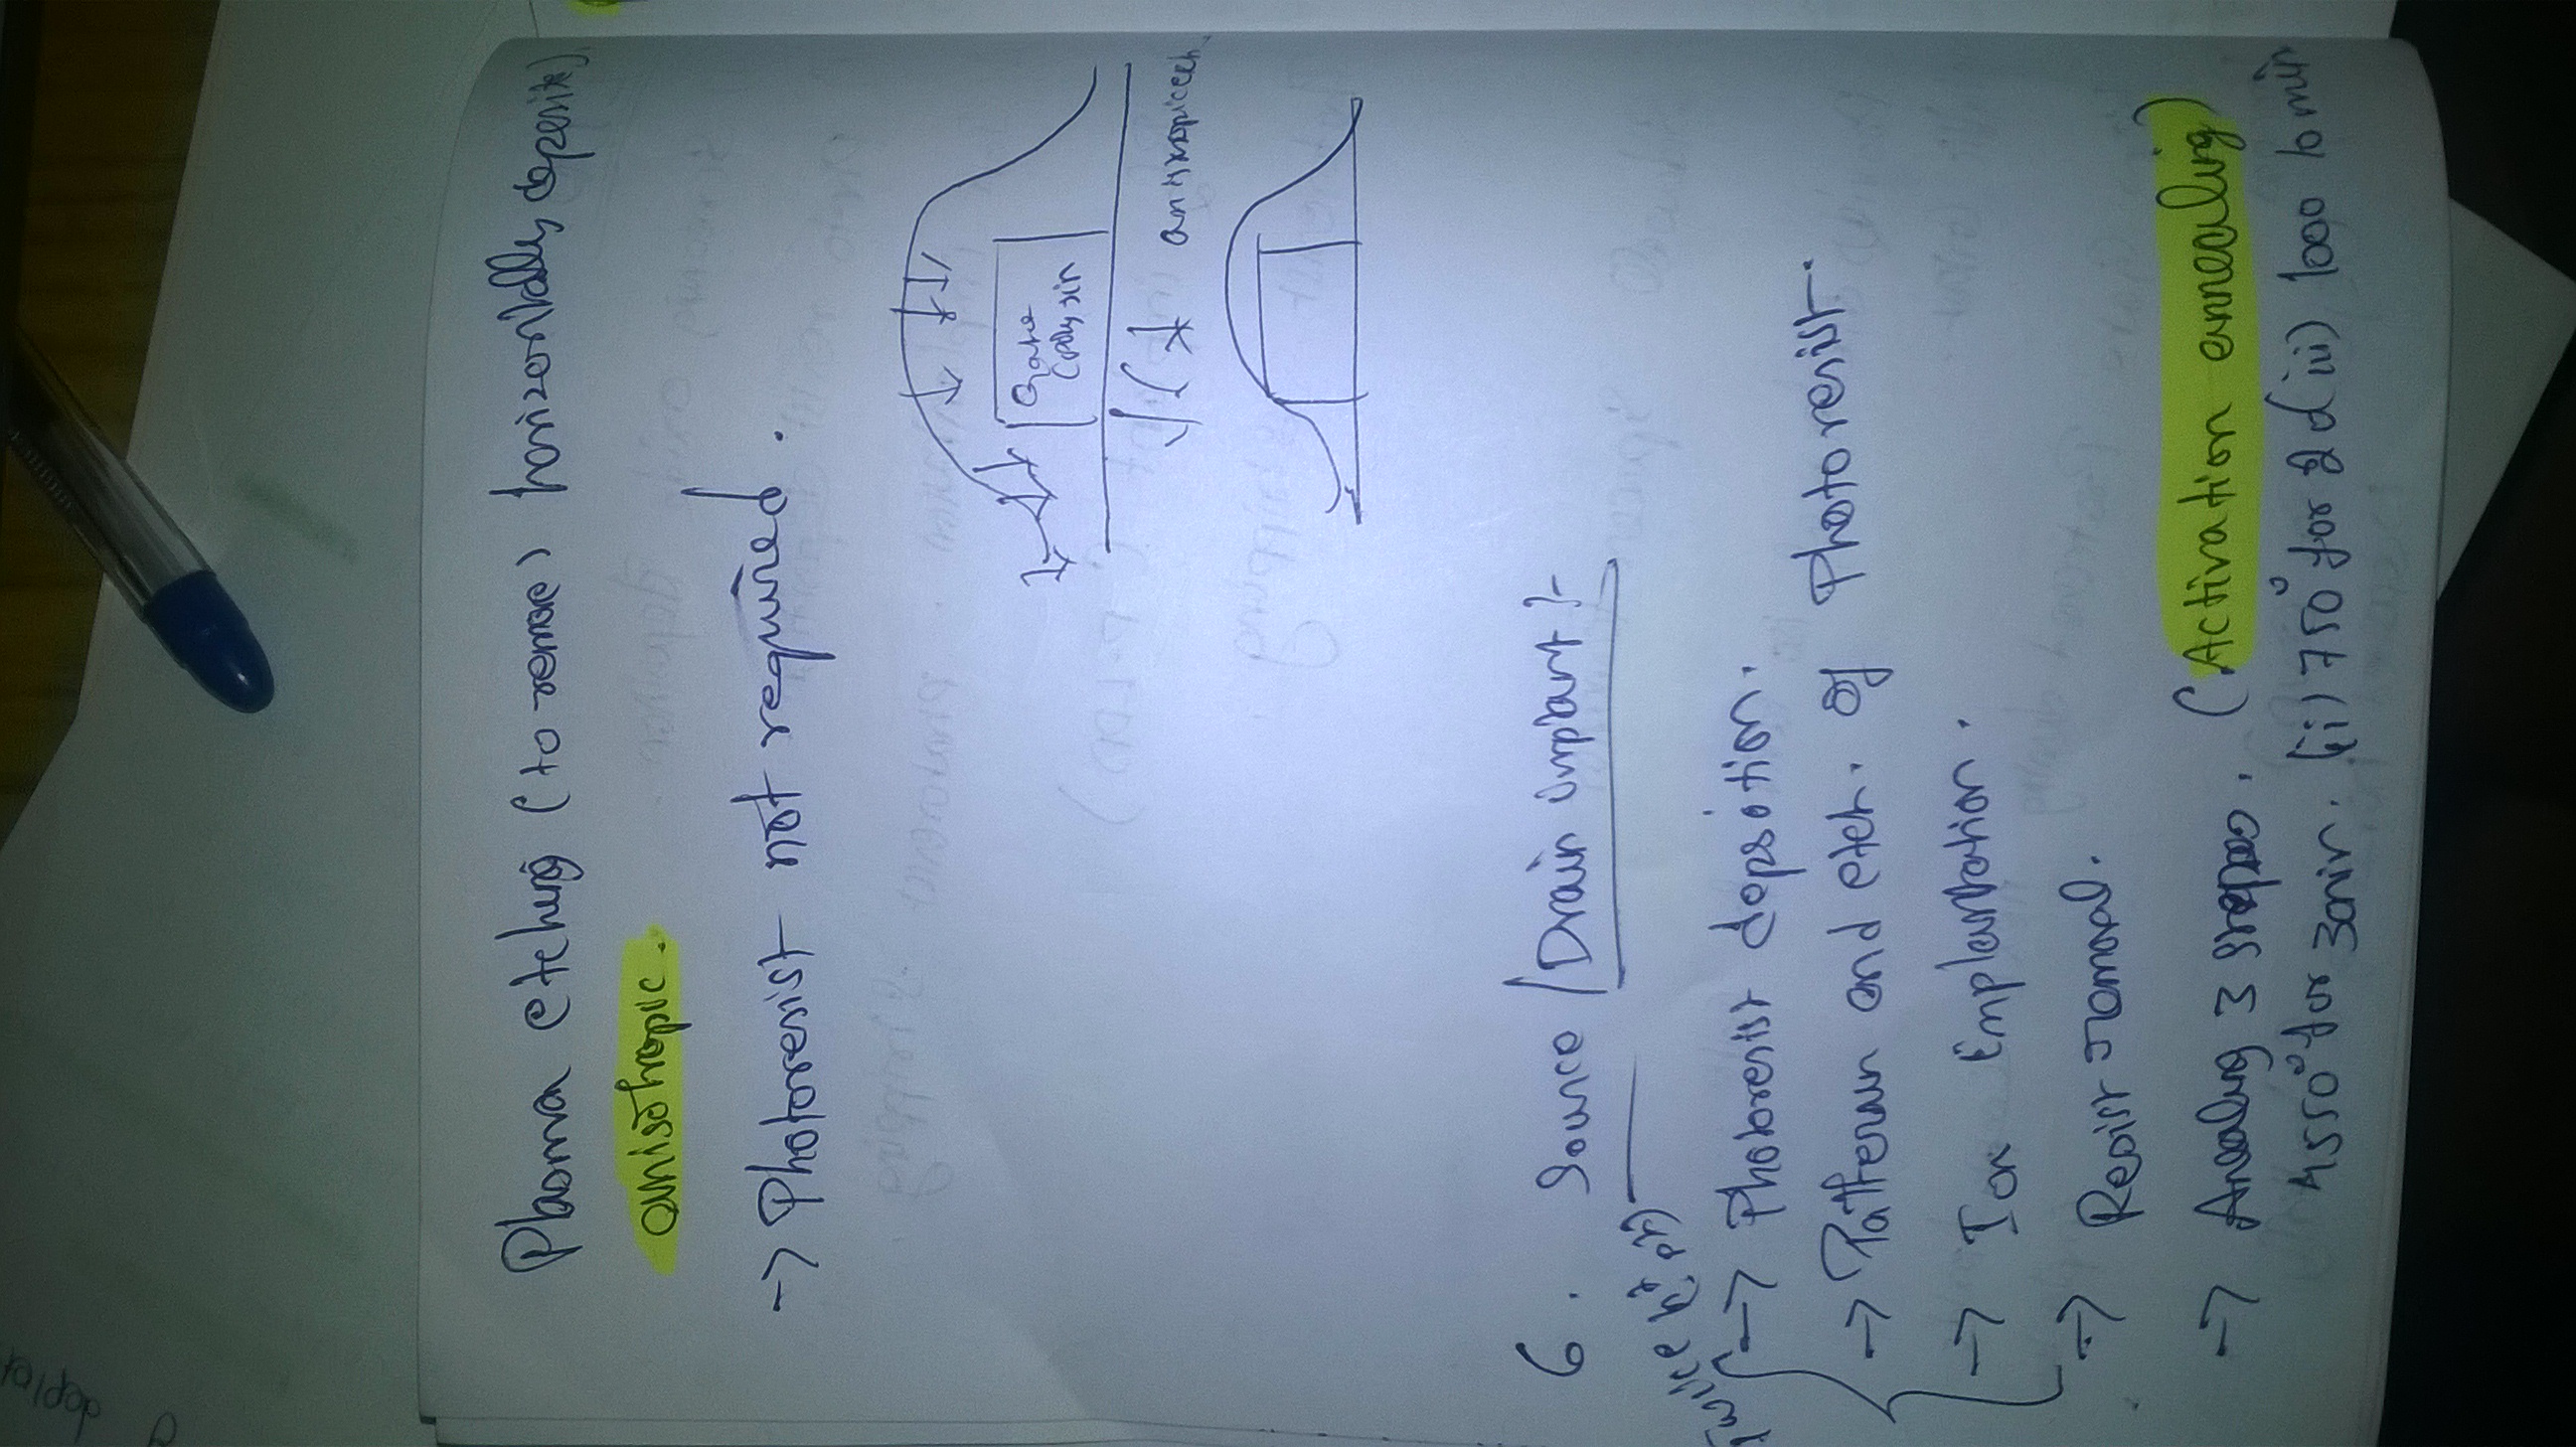 Plasma etching (to remove) horizontally deposite)
anisotropic.
-> Photoresist not required.
Gate
(poly sin
6. Source / Drain implant :-
Twice
-> Photoresist depsotion.
-> Patterun and etch. of Photoresist.
-> Ion Implantation.
-> Resist removal.
-> Anealing 3 (Activation annealing)
550° for 30min. (ii) 750° for (iii) 1000 10 min